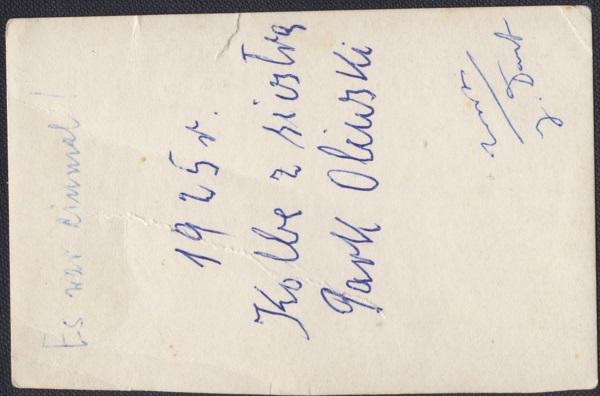 Es war einmal!
1925 r.
Kolbe z siostrą
Park Oliwski